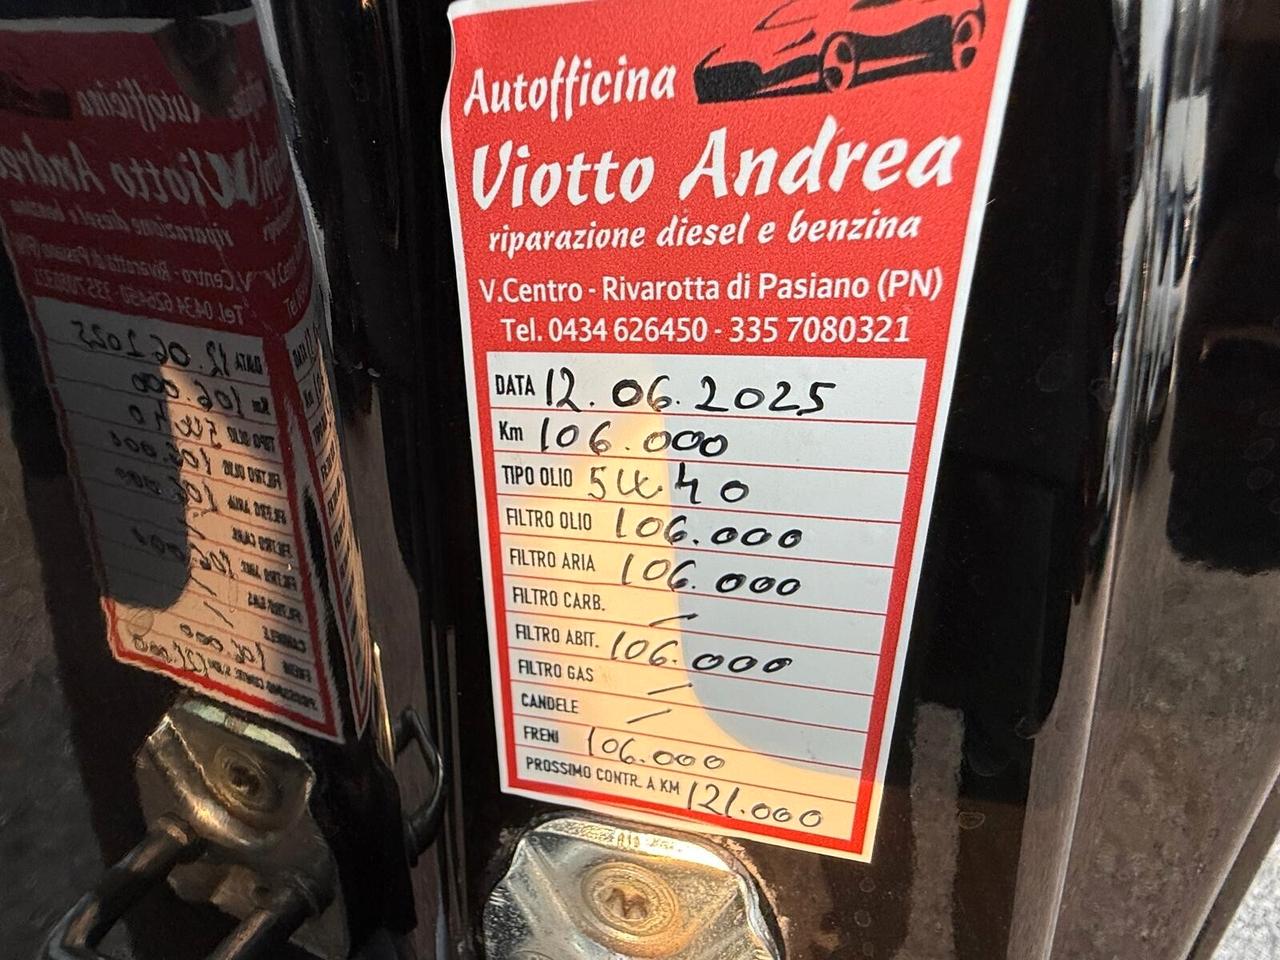 Autofficina
Viotto Andrea
riparazione diesel e benzina
V.Centro - Rivarotta di Pasiano (PN)
Tel. 0434 626450 - 335 7080321
DATA 12.06.2025
Km 106.000
TIPO OLIO 5W40
FILTRO OLIO 106.000
FILTRO ARIA 106.000
FILTRO CARB. /
FILTRO ABIT. 106.000
FILTRO GAS /
CANDELE /
FRENI 106.000
PROSSIMO CONTR. A KM 121.000